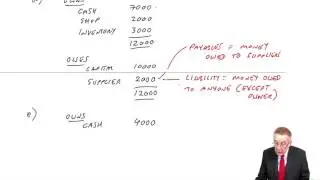 OWNS
CASH 7000
SHOP 2000
INVENTORY 3000
12000
OWES
CAPITAL 10000
SUPPLIER 2000
12000
PAYABLES = MONEY
OWED TO SUPPLIERS
LIABILITY = MONEY OWED
TO ANYONE (EXCEPT
OWNER)
e) OWNS
CASH 4000